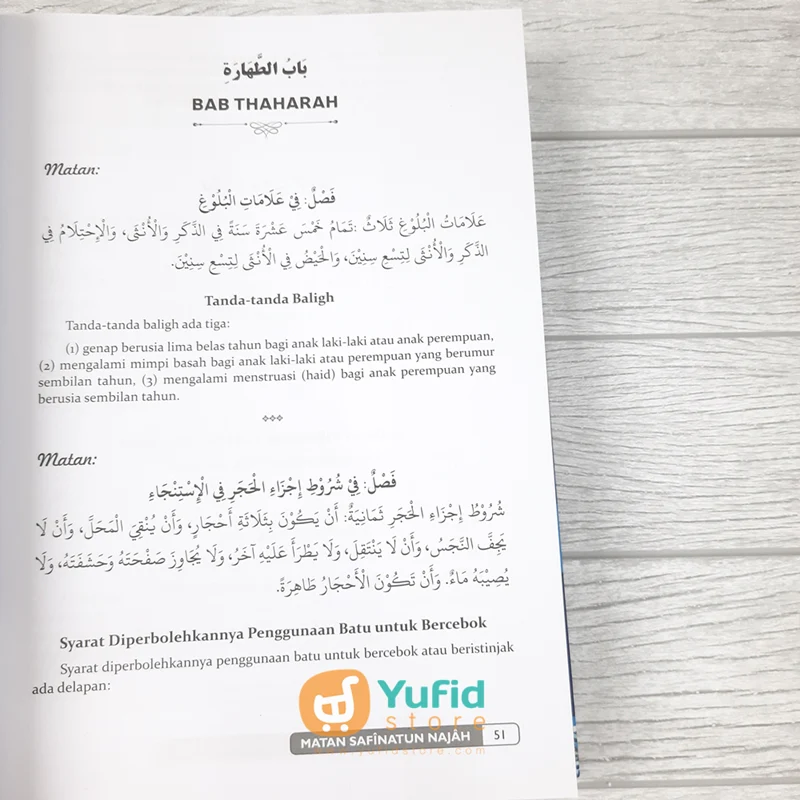 بَابُ الطَّهَارَةِ
BAB THAHARAH
Matan:
فَصْلٌ: فِيْ عَلَامَاتِ الْبُلُوْغِ
عَلَامَاتُ الْبُلُوْغِ ثَلَاثٌ :تَمَامُ خَمْسَ عَشْرَةَ سَنَةً فِي الذَّكَرِ وَالْأُنْثَى، وَالْاِحْتِلَامُ فِي
الذَّكَرِ وَالْأُنْثَى لِتِسْعِ سِنِيْنَ، وَالْحَيْضُ فِي الْأُنْثَى لِتِسْعِ سِنِيْنَ.
Tanda-tanda Baligh
Tanda-tanda baligh ada tiga:
(1) genap berusia lima belas tahun bagi anak laki-laki atau anak perempuan,
(2) mengalami mimpi basah bagi anak laki-laki atau perempuan yang berumur
sembilan tahun, (3) mengalami menstruasi (haid) bagi anak perempuan yang
berusia sembilan tahun.
Matan:
فَصْلٌ: فِيْ شُرُوْطِ إِجْزَاءِ الْحَجَرِ فِي الْإِسْتِنْجَاءِ
شُرُوْطُ إِجْزَاءِ الْحَجَرِ ثَمَانِيَةٌ: أَنْ يَكُوْنَ بِثَلَاثَةِ أَحْجَارٍ، وَأَنْ يُنْقِيَ الْمَحَلَّ، وَأَنْ لَا
يَجِفَّ النَّجَسُ، وَأَنْ لَا يَنْتَقِلَ، وَلَا يَطْرَأَ عَلَيْهِ آخَرُ، وَلَا يُجَاوِزَ صَفْحَتَهُ وَحَشَفَتَهُ، وَلَا
يُصِيْبَهُ مَاءٌ. وَأَنْ تَكُوْنَ الْأَحْجَارُ طَاهِرَةً.
Syarat Diperbolehkannya Penggunaan Batu untuk Bercebok
Syarat diperbolehkannya penggunaan batu untuk bercebok atau beristinjak
ada delapan:
Yufid
store
MATAN SAFÎNATUN NAJÂH 51
www.yufidstore.com